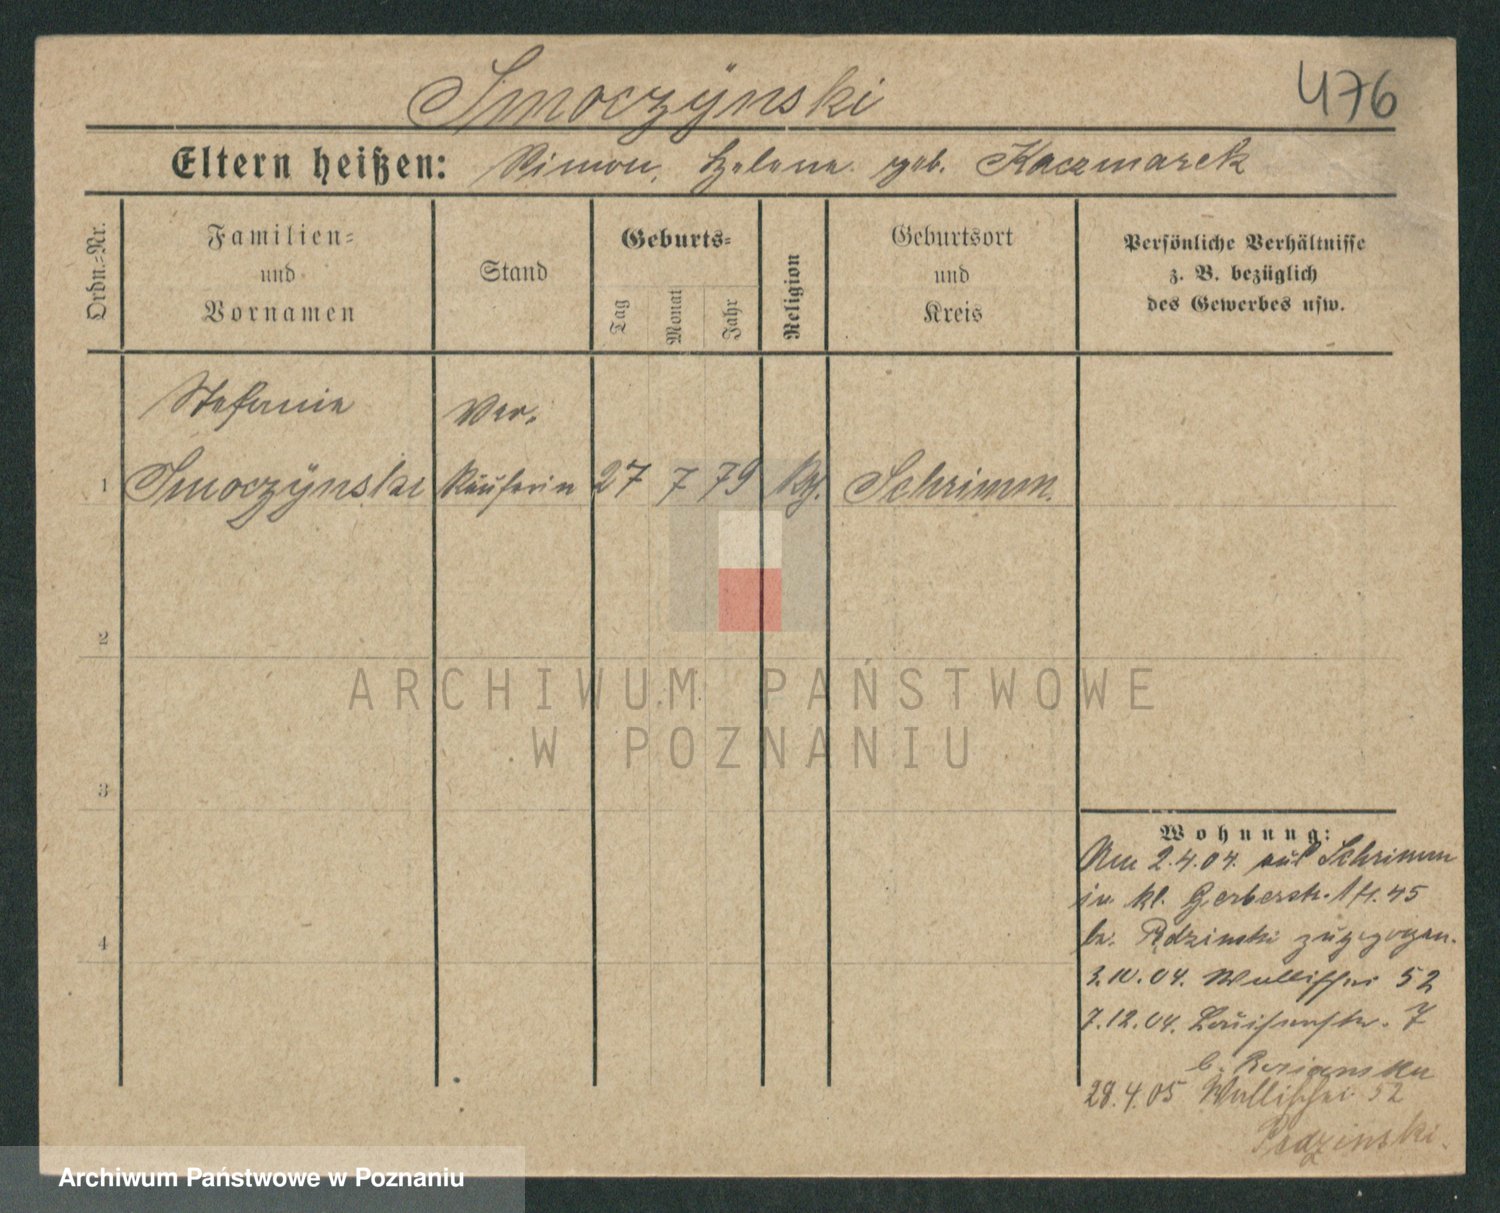 Smoczÿnski
476
Eltern heißen: Simon, Helene geb. Kaczmarek
Ordn.-Nr.
Familien-
und
Vornamen
Stand
Geburts-
Tag
Monat
Jahr
Religion
Geburtsort
und
Kreis
Persönliche Verhältnisse
z. B. bezüglich
des Gewerbes usw.
Stefanie
Ver.
1 Smoczÿnski käuferin 27 7 79 Schrimm.
2
3
4
Wohnung:
Am 2.4.04. aus Schrimm
in kl. Gerberstr. 45
bei zugezogen.
3.10.04. Wallischei 52
7.12.04. Louisenstr. 7
b.
28.4.05 Wallischei 52
ARCHIWUM PAŃSTWOWE
W POZNANIU
Archiwum Państwowe w Poznaniu